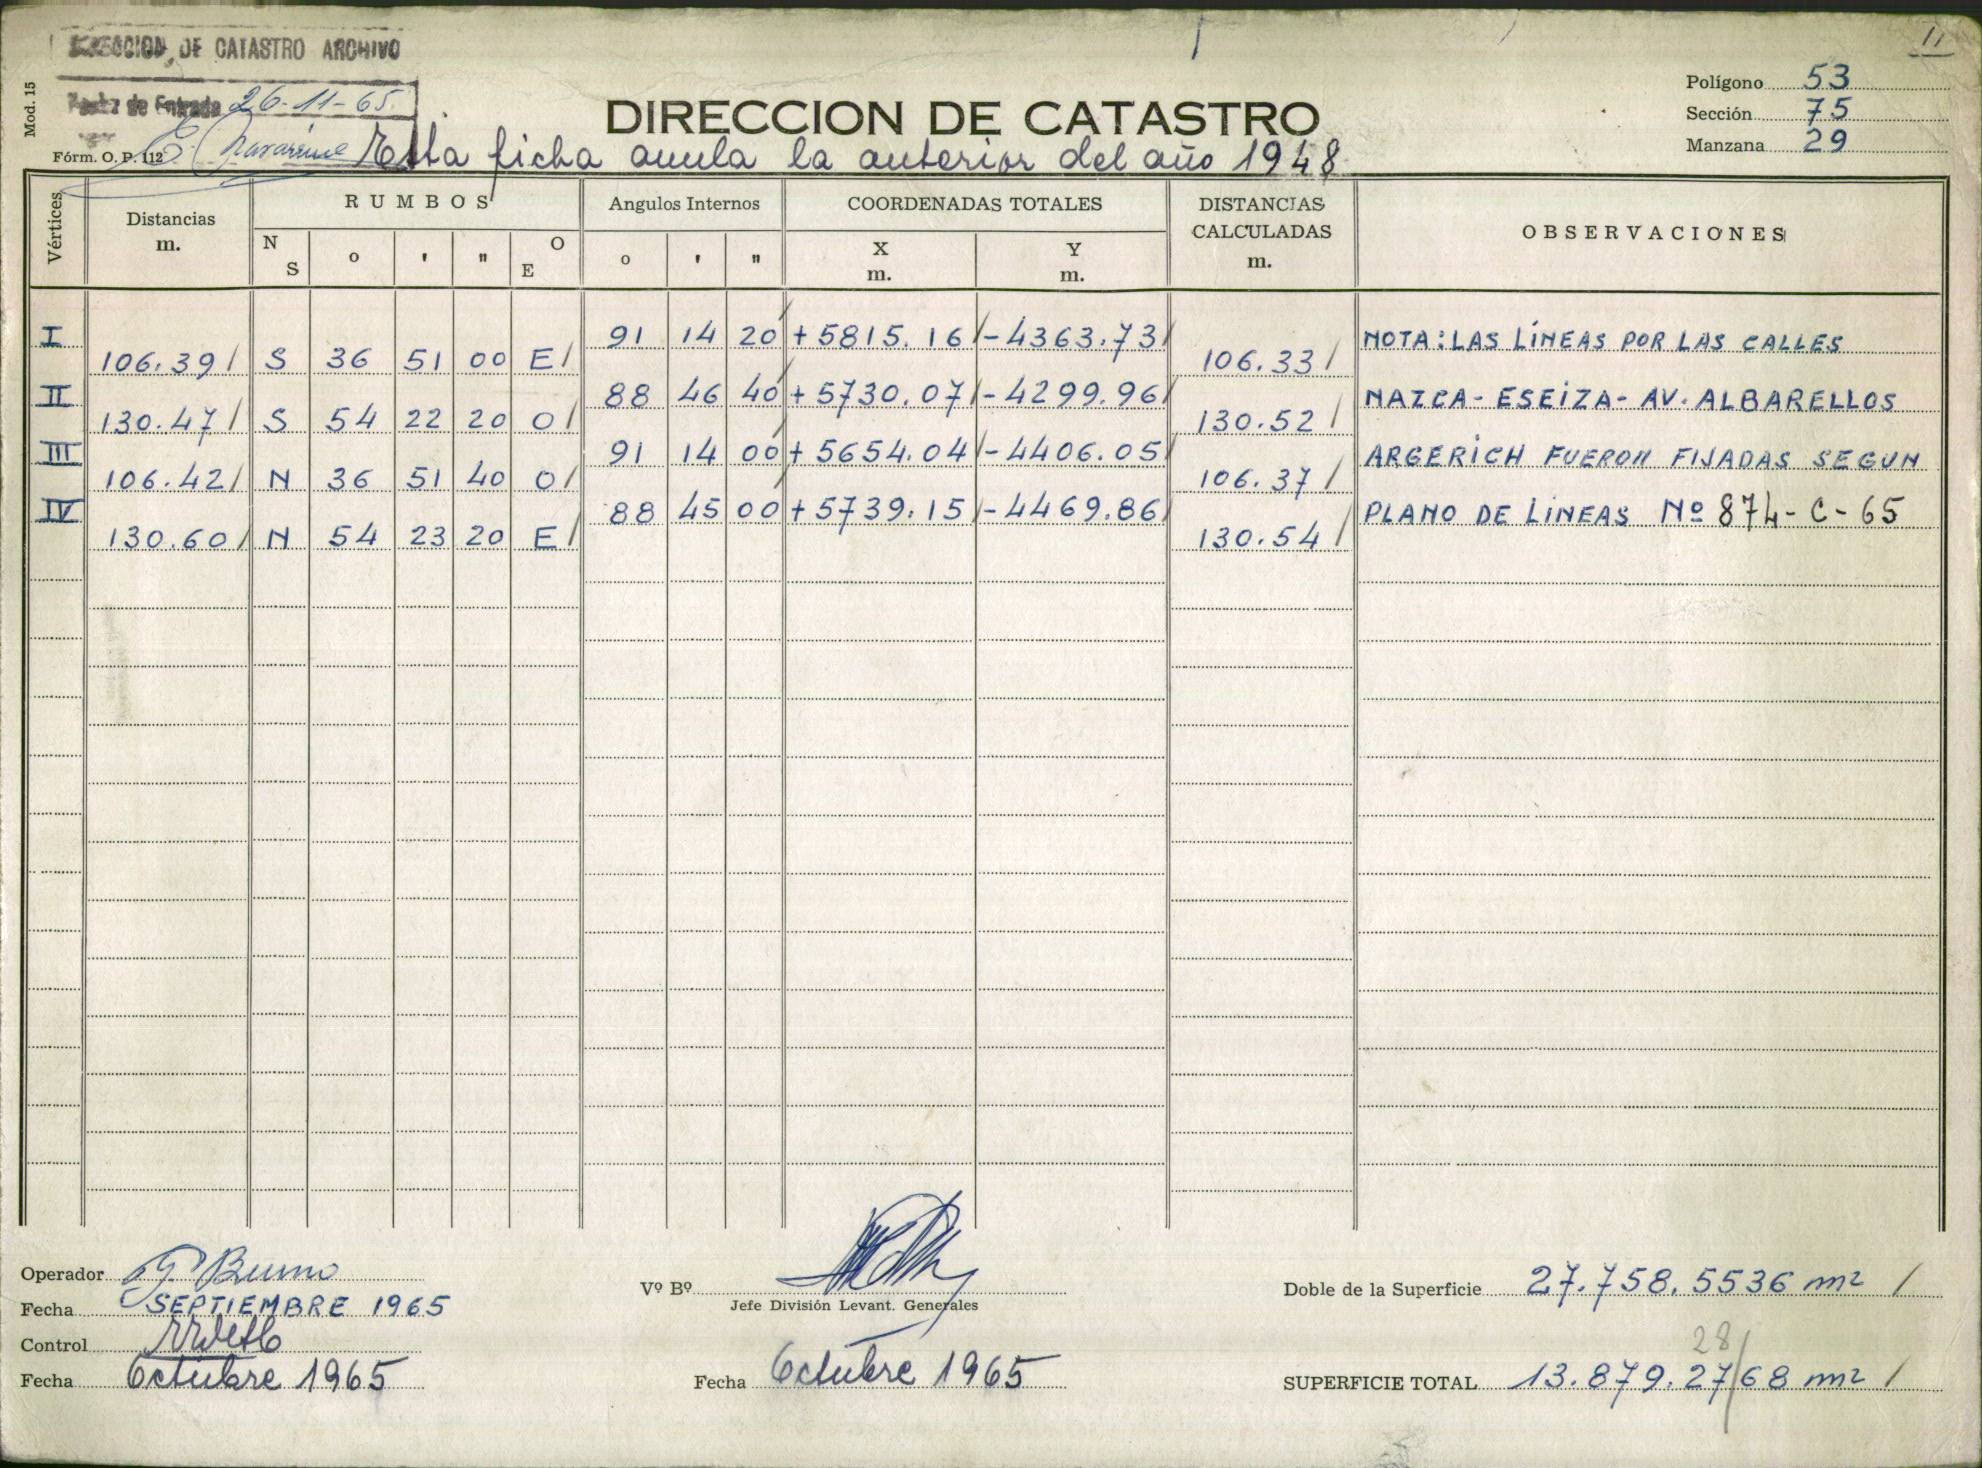 DIRECCION DE CATASTRO ARCHIVO
Fecha de Entrada 26-11-65.
11
Mod. 15
Fórm. O. P. 112
DIRECCION DE CATASTRO
Esta ficha anula la anterior del año 1948
Polígono 53
Sección 75
Manzana 29
Vértices
Distancias m.
RUMBOS
N S o ' " O E
Angulos Internos
o ' "
COORDENADAS TOTALES
X m. Y m.
DISTANCIAS CALCULADAS m.
OBSERVACIONES
I 91 14 20 +5815.16/ -4363.73/ NOTA: LAS LíNEAS POR LAS CALLES
106.39/ S 36 51 00 E/ 106.33/
II 88 46 40 +5730.07/ -4299.96/ NAZCA - ESEiZA - AV. ALBARELLOS
130.47/ S 54 22 20 O/ 130.52/
III 91 14 00 +5654.04/ -4406.05/ ARGERiCH FUERON FIJADAS SEGUN
106.42/ N 36 51 40 O/ 106.37/
IV 88 45 00 +5739.15/ -4469.86/ PLANO DE LíNEAS Nº 874-C-65
130.60/ N 54 23 20 E/ 130.54/
Operador
Fecha SEPTIEMBRE 1965
Control
Fecha Octubre 1965
Vº Bº
Jefe División Levant. Generales
Fecha Octubre 1965
Doble de la Superficie 27.758.5536 m² /
28
SUPERFICIE TOTAL 13.879.27/68 m² /